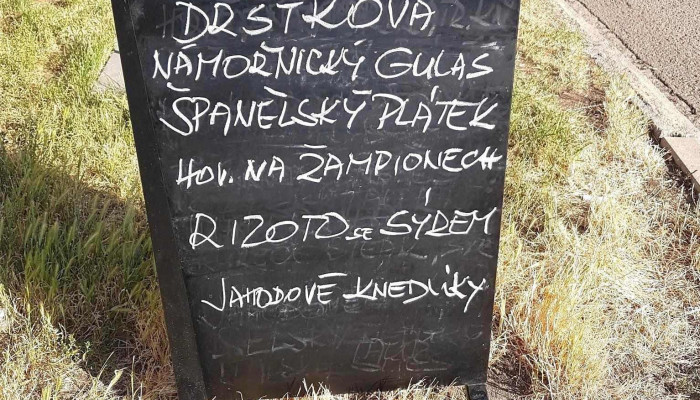 DRŠTKOVÁ
NÁMOŘNICKÝ GULÁŠ
ŠPANĚLSKÝ PLÁTEK
HOV. NA ŽAMPIONECH
RIZOTO SE SÝREM
JAHODOVÉ KNEDLÍKY